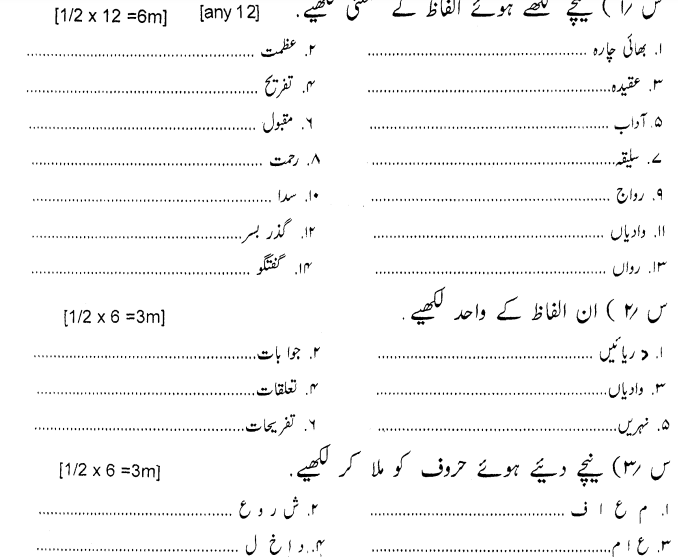 س /۱) نیچے لکھے ہوئے الفاظ کے معنی لکھیے. [any 12] [1/2 x 12 =6m]
۱. بھائی چارہ ........................ ۲. عظمت ........................
۳. عقیدہ ........................ ۴. تفریح ........................
۵. آداب ........................ ۶. مقبول ........................
۷. سلیقہ ........................ ۸. رحمت ........................
۹. رواج ........................ ۱۰. سدا ........................
۱۱. وادیاں ........................ ۱۲. گذر بسر ........................
۱۳. رواں ........................ ۱۴. گفتگو ........................
س /۲) ان الفاظ کے واحد لکھیے. [1/2 x 6 =3m]
۱. دریائیں ........................ ۲. جوابات ........................
۳. وادیاں ........................ ۴. تعلقات ........................
۵. نہریں ........................ ۶. تفریحات ........................
س /۳) نیچے دئیے ہوئے حروف کو ملا کر لکھیے. [1/2 x 6 =3m]
۱. م ع ا ف ........................ ۲. ش ر و ع ........................
۳. ع ا م ........................ ۴. د ا خ ل ........................